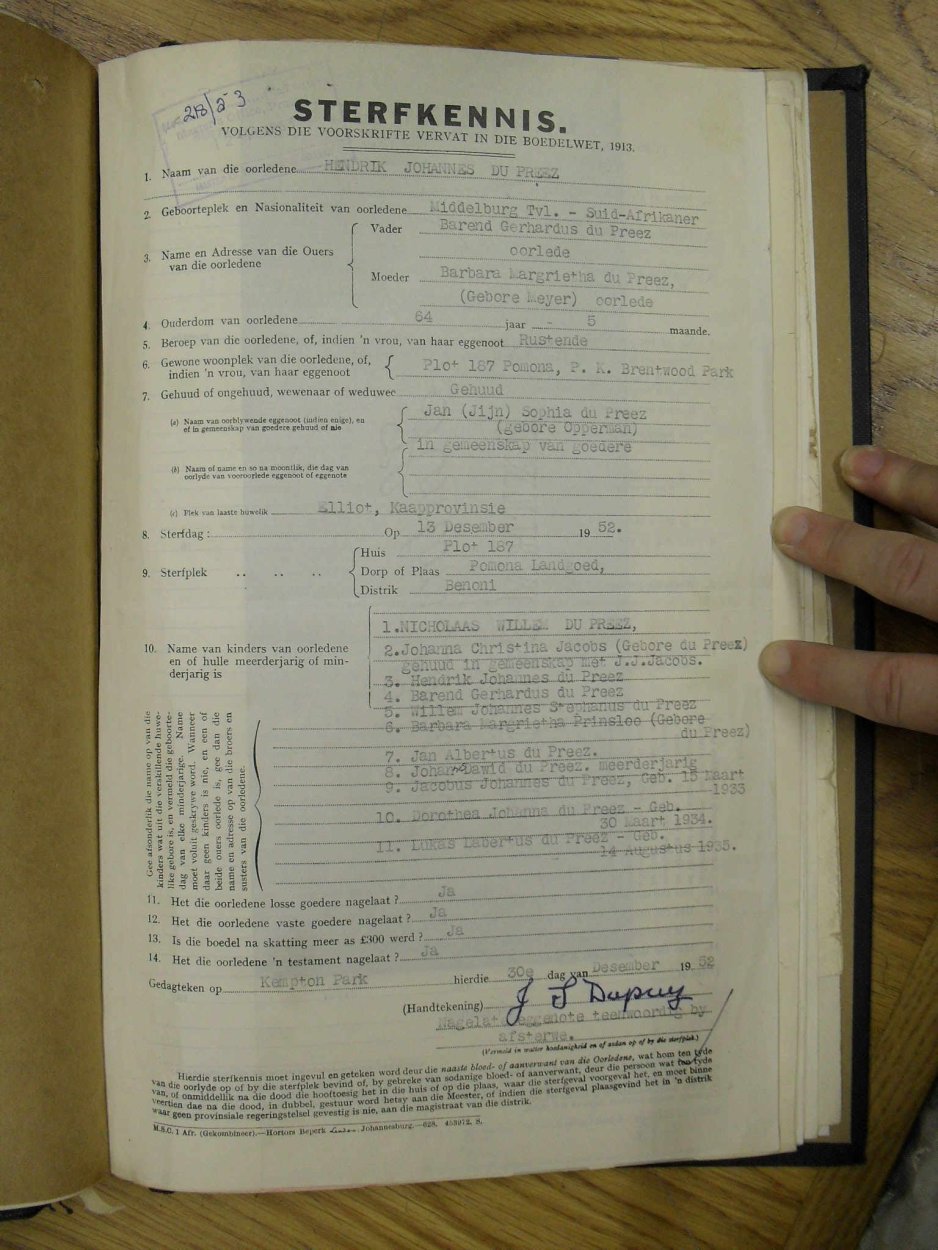 28/53
STERFKENNIS.
VOLGENS DIE VOORSKRIFTE VERVAT IN DIE BOEDELWET, 1913.
1. Naam van die oorledene HENDRIK JOHANNES DU PREEZ
2. Geboorteplek en Nasionaliteit van oorledene Middelburg Tvl. - Suid-Afrikaner
3. Name en Adresse van die Ouers van die oorledene
Vader Barend Gerhardus du Preez
oorlede
Moeder Barbara Margrietha du Preez,
(Gebore Meyer) oorlede
4. Ouderdom van oorledene 64 jaar - 5 maande.
5. Beroep van die oorledene, of, indien 'n vrou, van haar eggenoot Rustende
6. Gewone woonplek van die oorledene, of,
indien 'n vrou, van haar eggenoot Plot 187 Pomona, P. K. Brentwood Park
7. Gehuud of ongehuud, wewenaar of weduwee Gehuud
(a) Naam van oorblywende eggenoot (indien enige), en
of in gemeenskap van goedere gehuud of nie
Jan (Jijn) Sophia du Preez
(gebore Opperman)
in gemeenskap van goedere
(b) Naam of name en so na moontlik, die dag van
oorlyde van vooroorlede eggenoot of eggenote
(c) Plek van laaste huwelik Elliot, Kaapprovinsie
8. Sterfdag : Op 13 Desember 19 52.
9. Sterfplek .. .. ..
Huis Plot 187
Dorp of Plaas Pomona Landgoed,
Distrik Benoni
10. Name van kinders van oorledene
en of hulle meerderjarig of min-
derjarig is
1.NICHOLAAS WILLEM DU PREEZ,
2.Johanna Christina Jacobs (Gebore du Preez)
gehuud in gemeenskap met J.J.Jacobs.
3. Hendrik Johannes du Preez
4. Barend Gerhardus du Preez
5. Willem Johannes Stephanus du Preez
6. Barbara Margrietha Prinsloo (Gebore
du Preez)
7. Jan Albertus du Preez.
8. Johan Dawid du Preez. meerderjarig
9. Jacobus Johannes du Preez, Geb. 15 Maart
1933
10. Dorothea Johanna du Preez - Geb.
30 Maart 1934.
11. Lukas Labertus du Preez - Geb.
14 Augustus 1935.
Gee afsonderlik die name op van die
kinders wat uit die verskillende huwe-
like gebore is, en vermeld die geboorte-
dag van elke minderjarige. Name
moet voluit geskrywe word. Wanneer
daar geen kinders is nie, en een of
beide ouers oorlede is, gee dan die
name en adresse op van die broers en
susters van die oorledene.
11. Het die oorledene losse goedere nagelaat ? Ja
12. Het die oorledene vaste goedere nagelaat ? Ja
13. Is die boedel na skatting meer as £300 werd ? Ja
14. Het die oorledene 'n testament nagelaat ? Ja
Gedagteken op Kempton Park hierdie 30e dag van Desember 19 52
(Handtekening) J S Dupuy
Nagelate eggenote teenwoordig by
afsterwe.
(Vermeld in watter hoedanigheid en of aldan op of by die sterfplek.)
Hierdie sterfkennis moet ingevul en geteken word deur die naaste bloed- of aanverwant van die Oorledene, wat hom ten tyde
van die oorlyde op of by die sterfplek bevind of, by gebreke van sodanige bloed- of aanverwant, deur die persoon wat ten tyde
van, of onmiddellik na die dood die hooftoesig het in die huis of op die plaas, waar die sterfgeval voorgeval het, en moet binne
veertien dae na die dood, in dubbel, gestuur word hetsy aan die Meester, of indien die sterfgeval plaasgevind het in 'n distrik
waar geen provinsiale regeringstelsel gevestig is nie, aan die magistraat van die distrik.
M.S.C. 1 Afr. (Gekombineer).—Hortors Beperk Johannesburg.—628. 453972. S.